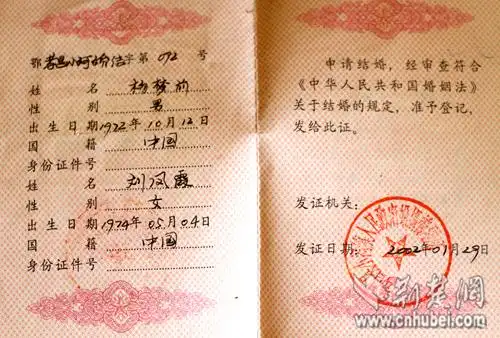 鄂 字第 072 号
姓 名 杨
性 别 男
出生日期 1972年10月12日
国 籍 中国
身份证件号
姓 名 刘凤霞
性 别 女
出生日期 1974年05月04日
国 籍 中国
身份证件号
申请结婚，经审查符合
《中华人民共和国婚姻法》
关于结婚的规定，准予登记，
发给此证。
发证机关：
人民政府
发证日期：2002年01月29日
荆楚网
www.cnhubei.com